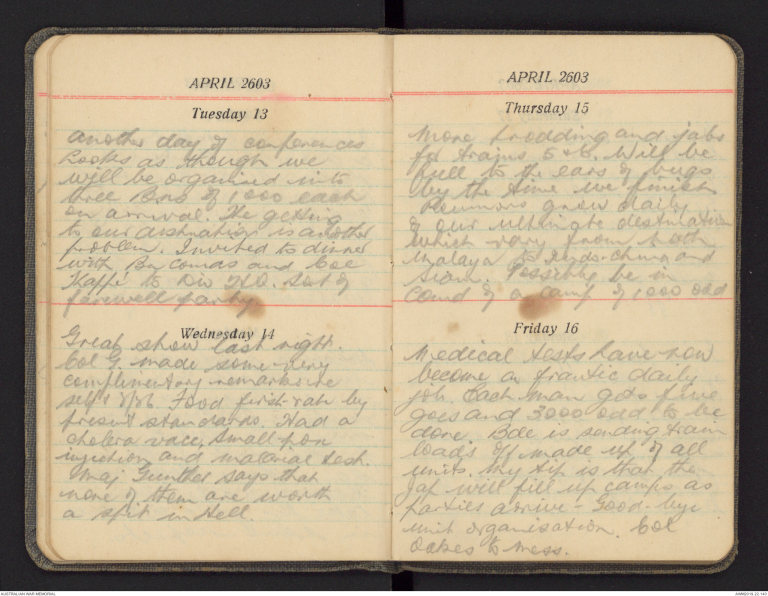 APRIL 2603
Tuesday 13
Another day of conferences
Looks as though we
will be organised into
three Bns of 1000 each
on arrival. The getting
to our destination is another
problem. Invited to dinner
with Bn Comds and Col
Kappé to Div H.Q. Sort of
farewell party.
Wednesday 14
Great show last night.
Col G. made some very
complimentary remarks re
self & Food first-rate by
present standards. Had a
cholera vacc, small pox
injection and malarial test.
Maj Gunther says that
none of them are worth
a spit in Hell.
APRIL 2603
Thursday 15
More prodding and jabs
for trains 5 & 6. Will be
full to the ears of bugs
by the time we finish
Rumours grow daily
of our ultimate destination
which vary from north
Malaya to Indo-China and
Siam. Possibly be in
comd of a camp of 1000 odd
Friday 16
Medical tests have now
become a frantic daily
job. Each man gets five
goes and 3000 odd to be
done. Bde is sending train
loads off made up of all
units. My tip is that the
Jap will fill up camps as
parties arrive - Good-bye
unit organisation. Col
Oakes to mess.
AUSTRALIAN WAR MEMORIAL